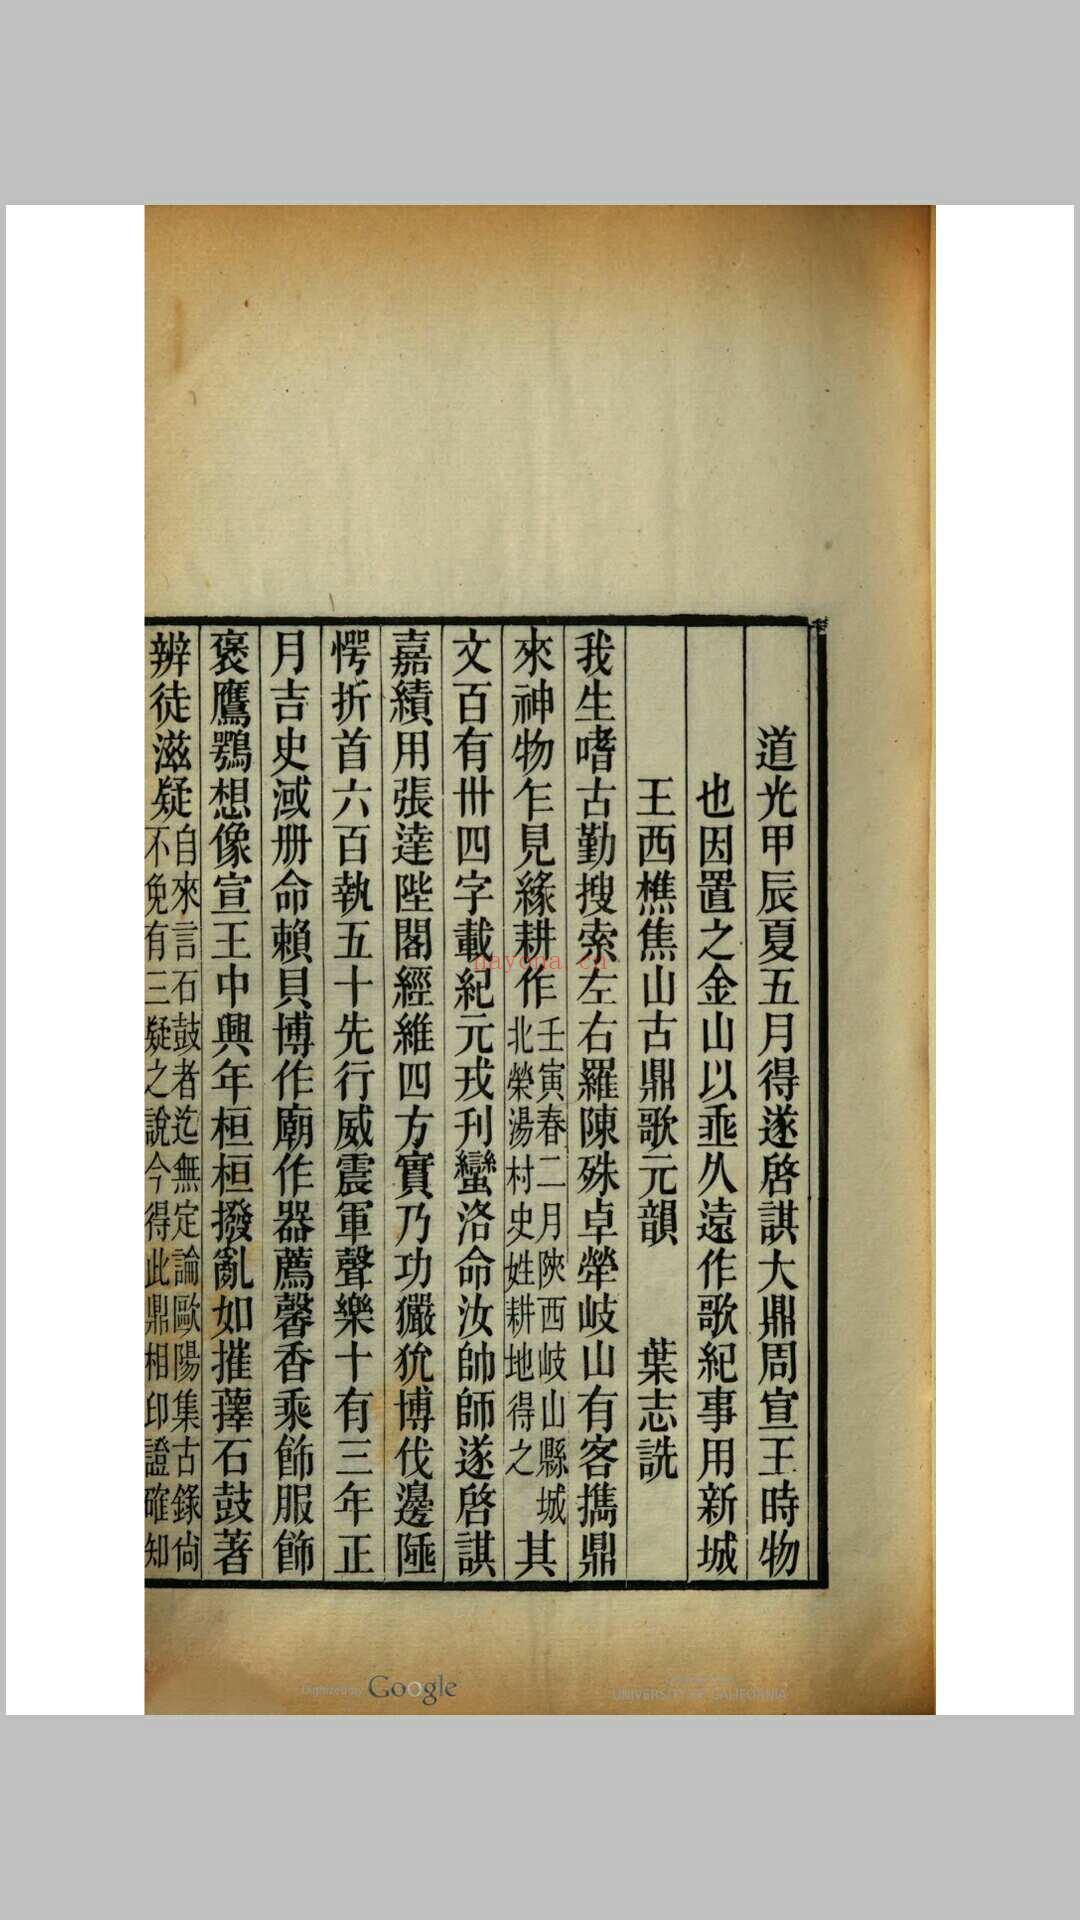 道光甲辰夏五月得遂啓諆大鼎周宣王時物
也因置之金山以垂久遠作歌紀事用新城
王西樵焦山古鼎歌元韻 葉志詵
我生嗜古勤搜索左右羅陳殊卓犖岐山有客攜鼎
來神物乍見緣耕作壬寅春二月陝西岐山縣城北榮湯村史姓耕地得之其
文百有卌四字載紀元戎刋蠻洛命汝帥師遂啓諆
嘉績用張達陛閣經維四方實乃功玁狁博伐邊陲
愕折首六百執五十先行威震軍聲樂十有三年正
月吉史淢册命賴貝博作廟作器薦馨香乘飾服飾
褒鷹鶚想像宣王中興年桓桓撥亂如摧蘀石鼓著
辨徒滋疑自來言石鼓者迄無定論歐陽集古錄尙不免有三疑之說今得此鼎相印證確知
nayona.cn
Digitized by Google
UNIVERSITY OF CALIFORNIA